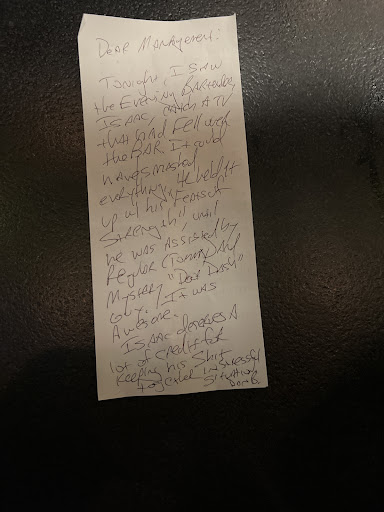 Dear Management:
Tonight, I saw
the Evening Bartender,
ISAAC, catch a TV
that had fell over
the BAR. It could
have smashed
everything. He held it
up w/ his
Strength!! until
he was Assisted by
Regular (Tommy) And
Mystery "Door Dash"
Guy. It was
Awesome.
ISAAC deserves A
lot of credit for
keeping his Shit
together in stressful
situation